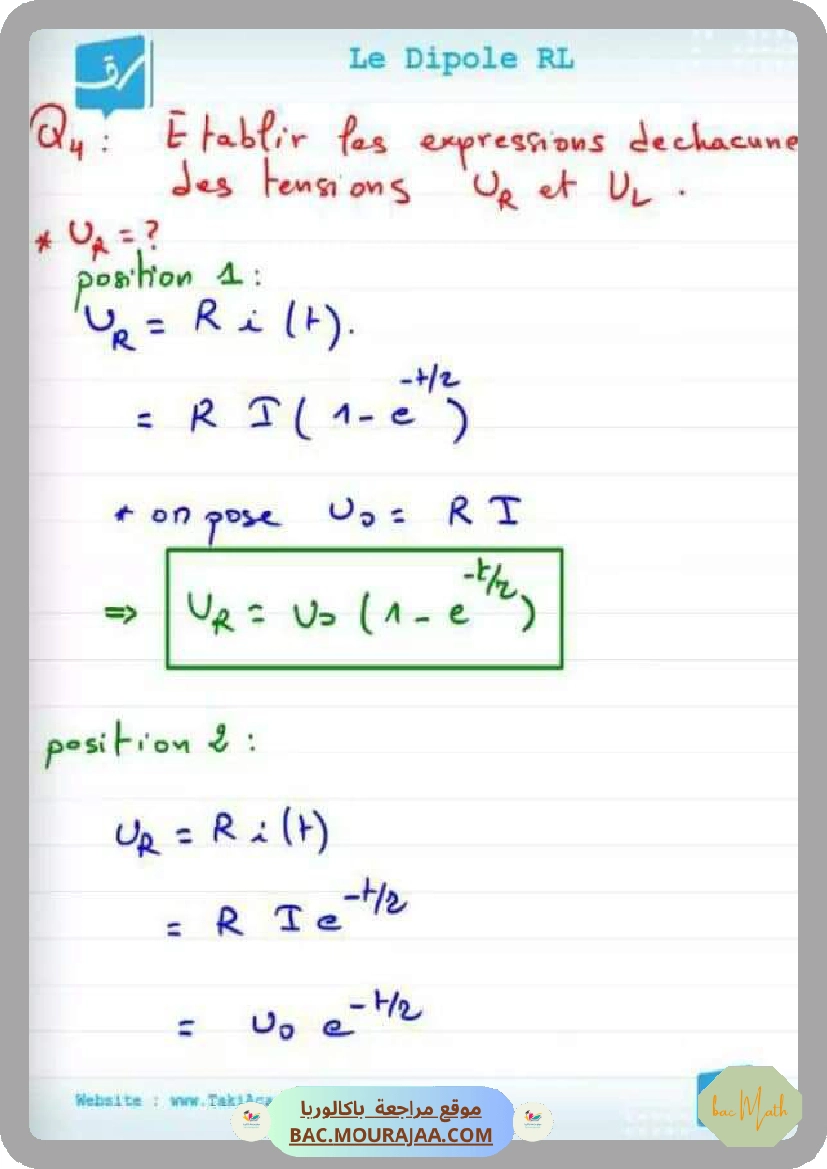 Le Dipole RL
Q4 : Etablir les expressions de chacune
des tensions UR et UL .
* UR = ?
position 1 :
UR = R i (t).
= R I ( 1 - e^-t/τ )
* on pose U0 = R I
=> UR = U0 ( 1 - e^-t/τ )
position 2 :
UR = R i (t)
= R I e^-t/τ
= U0 e^-t/τ
Website : www.TakiAca
موقع مراجعة باكالوريا
BAC.MOURAJAA.COM
bac Math